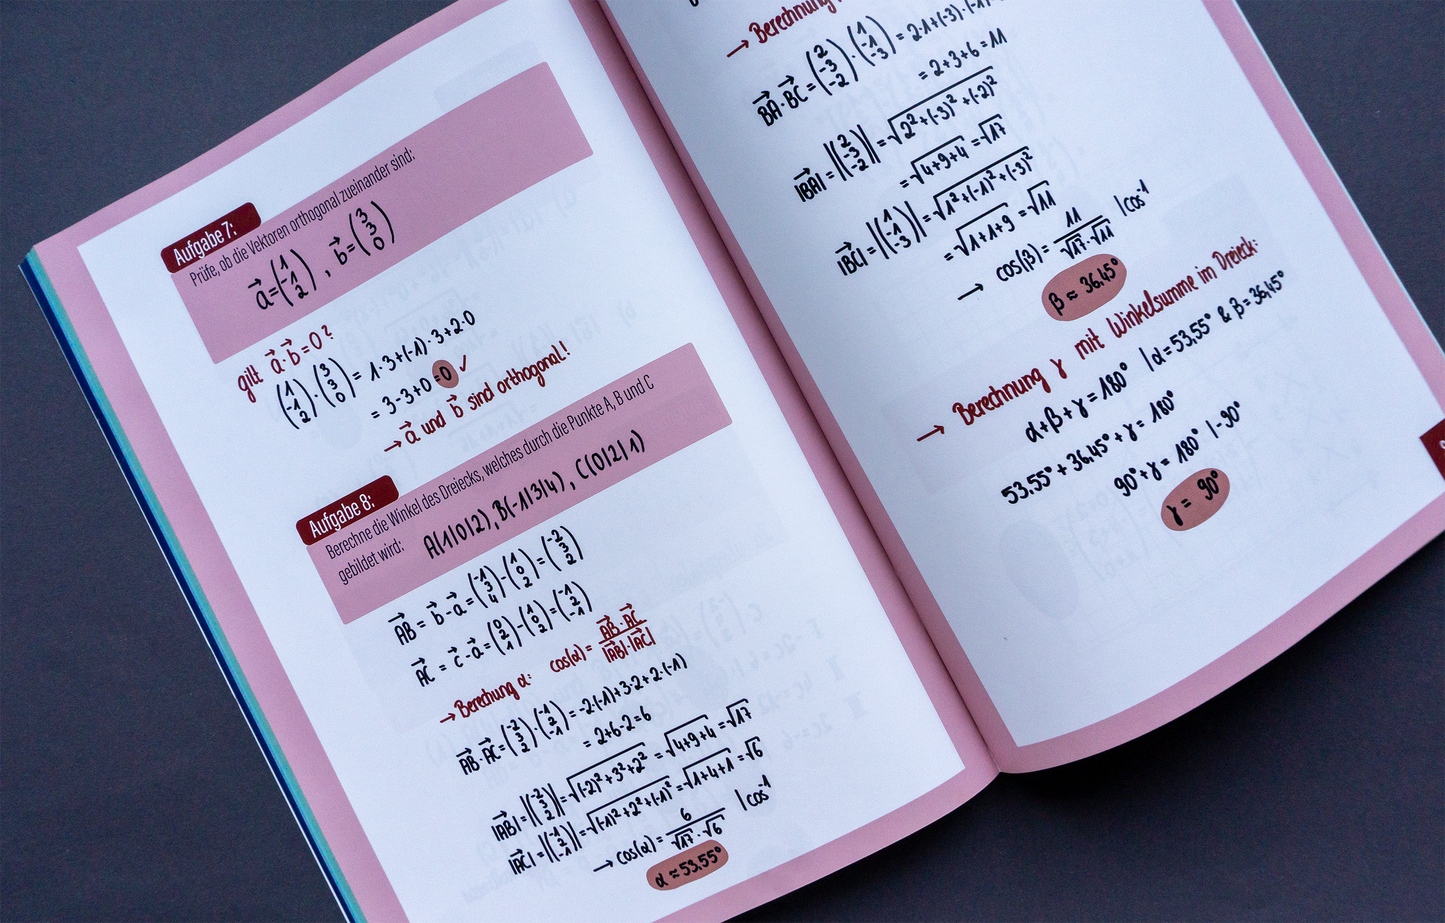 Aufgabe 7:
Prüfe, ob die Vektoren orthogonal zueinander sind:
a⃗=(1 -1 2), b⃗=(3 3 0)
gilt a⃗·b⃗=0?
(1 -1 2)·(3 3 0)= 1·3+(-1)·3+2·0
= 3-3+0=0 ✓
→ a⃗ und b⃗ sind orthogonal!
Aufgabe 8:
Berechne die Winkel des Dreiecks, welches durch die Punkte A, B und C
gebildet wird: A(1|0|2), B(-1|3|4), C(0|2|1)
AB⃗ = b⃗-a⃗=(-1 3 4)-(1 0 2)=(-2 3 2)
AC⃗ = c⃗-a⃗=(0 2 1)-(1 0 2)=(-1 2 -1)
→ Berechung α: cos(α)= AB⃗·AC⃗ / |AB⃗|·|AC⃗|
AB⃗·AC⃗=(-2 3 2)·(-1 2 -1)=-2·(-1)+3·2+2·(-1)
= 2+6-2=6
|AB⃗|=|(-2 3 2)|=√((-2)²+3²+2²) = √(4+9+4) = √17
|AC⃗|=|(-1 2 -1)|=√((-1)²+2²+(-1)²) = √(1+4+1) = √6
→ cos(α)= 6/(√17·√6) |cos⁻¹
α≈53.55°
→ Berechnung
BA⃗·BC⃗=(2 -3 -2)·(1 -1 -3)= 2·1+(-3)·(-1)
= 2+3+6=11
|BA⃗|=|(2 -3 -2)|=√(2²+(-3)²+(-2)²)
= √(4+9+4) = √17
|BC⃗|=|(1 -1 -3)|=√(1²+(-1)²+(-3)²)
= √(1+1+9) = √11
→ cos(β)= 11/(√17·√11) |cos⁻¹
β≈36,45°
→ Berechnung γ mit Winkelsumme im Dreieck:
α+β+γ=180° |α=53.55° & β=36,45°
53.55°+36,45°+γ=180°
90°+γ=180° |-90°
γ= 90°